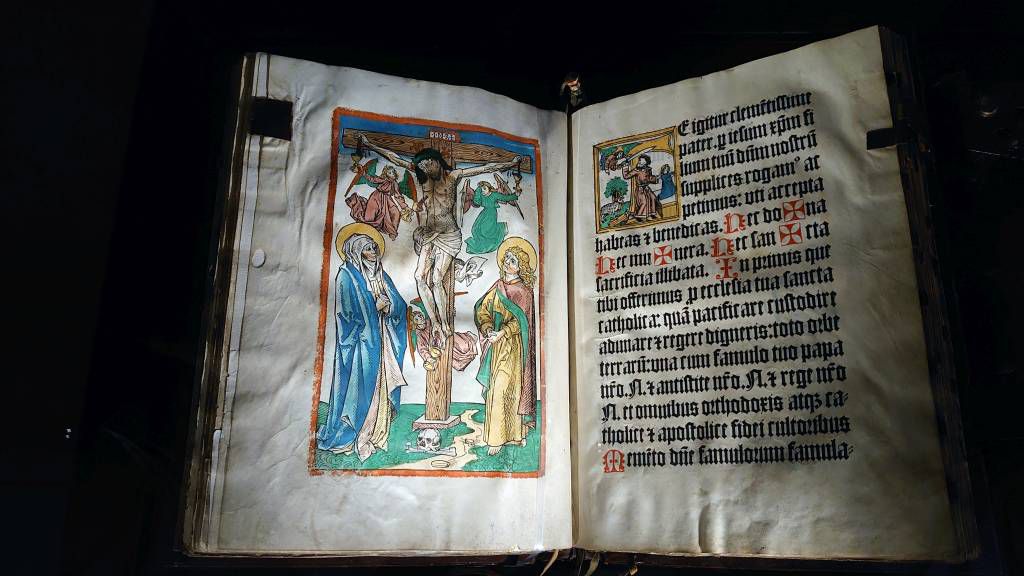 E igitur clemētissime
pater. ꝑ iesum xp̄m fi
lium tuū dn̄m nostrū
supplices rogamꝰ ac
petimus: uti accepta
habeas ⁊ benedicas. Hec do ✠ na
Hec mu ✠ nera. Hec san ✠ cta
sacrificia illibata. In primis que
tibi offerimus ꝓ ecclesia tua sancta
catholica: quā pacificare custodire
adunare ⁊ regere digneris: toto orbe
terrarū: una cum famulo tuo papa
nr̄o. N. ⁊ antistite nr̄o. N. ⁊ rege nr̄o
N. et omnibus orthodoxis atqꝫ ca-
tholice ⁊ apostolice fidei cultoribus
Memēto dn̄e famulorum famula-